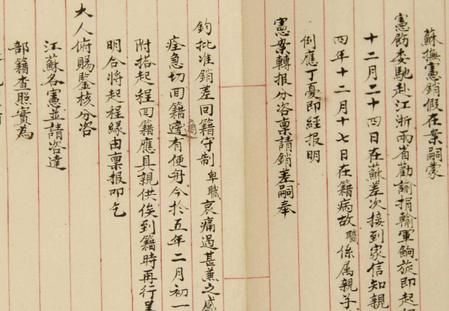 蘇撫憲銷假在案嗣蒙
憲飭委馳赴江浙兩省勸諭捐輸軍餉旅即起
十二月二十四日在蘇差次接到家信知親
四年十二月十七日在籍病故職係属親
例應丁憂即經报明
憲案轉报分咨稟請銷差嗣奉
鈞批准銷差回籍守制卑職哀痛過甚兼之感
痊急切回籍有便舟今於五年二月初一
附搭起程回籍應具親供俟到籍時再行呈
明合將起程緣由稟报叩乞
大人俯賜鑒核分咨
江蘇各憲並請咨達
部籍查照實為